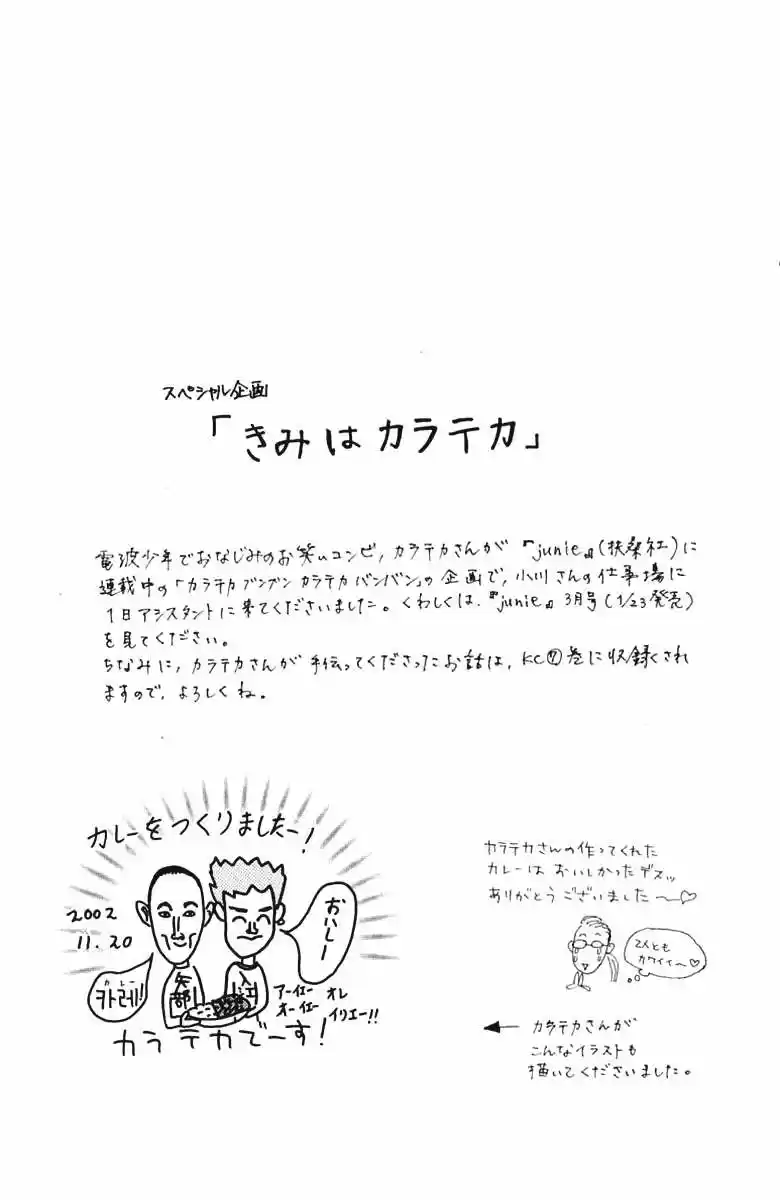 スペシャル企画
「きみはカラテカ」
電波少年でおなじみのお笑いコンビ,カラテカさんが『junie』(扶桑社)に
連載中の「カラテカブンブンカラテカバンバン」の企画で,小川さんの仕事場に
1日アシスタントに来てくださいました。くわしくは,『junie』3月号(1/23発売)
を見てください。
ちなみに,カラテカさんが手伝ってくださったお話は,KC⑦巻に収録され
ますので,よろしくね。
カレーをつくりましたー!
2002
11.20
おいしー
カレー
カトレ!!
矢部
入江
アーイエー
オーイエー
オレ
イリエー!!
カラテカでーす!
カラテカさんの作ってくれた
カレーはおいしかったデスッ
ありがとうございました〜♡
2人とも
カワイイ〜♡
← カラテカさんが
こんなイラストも
描いてくださいました。